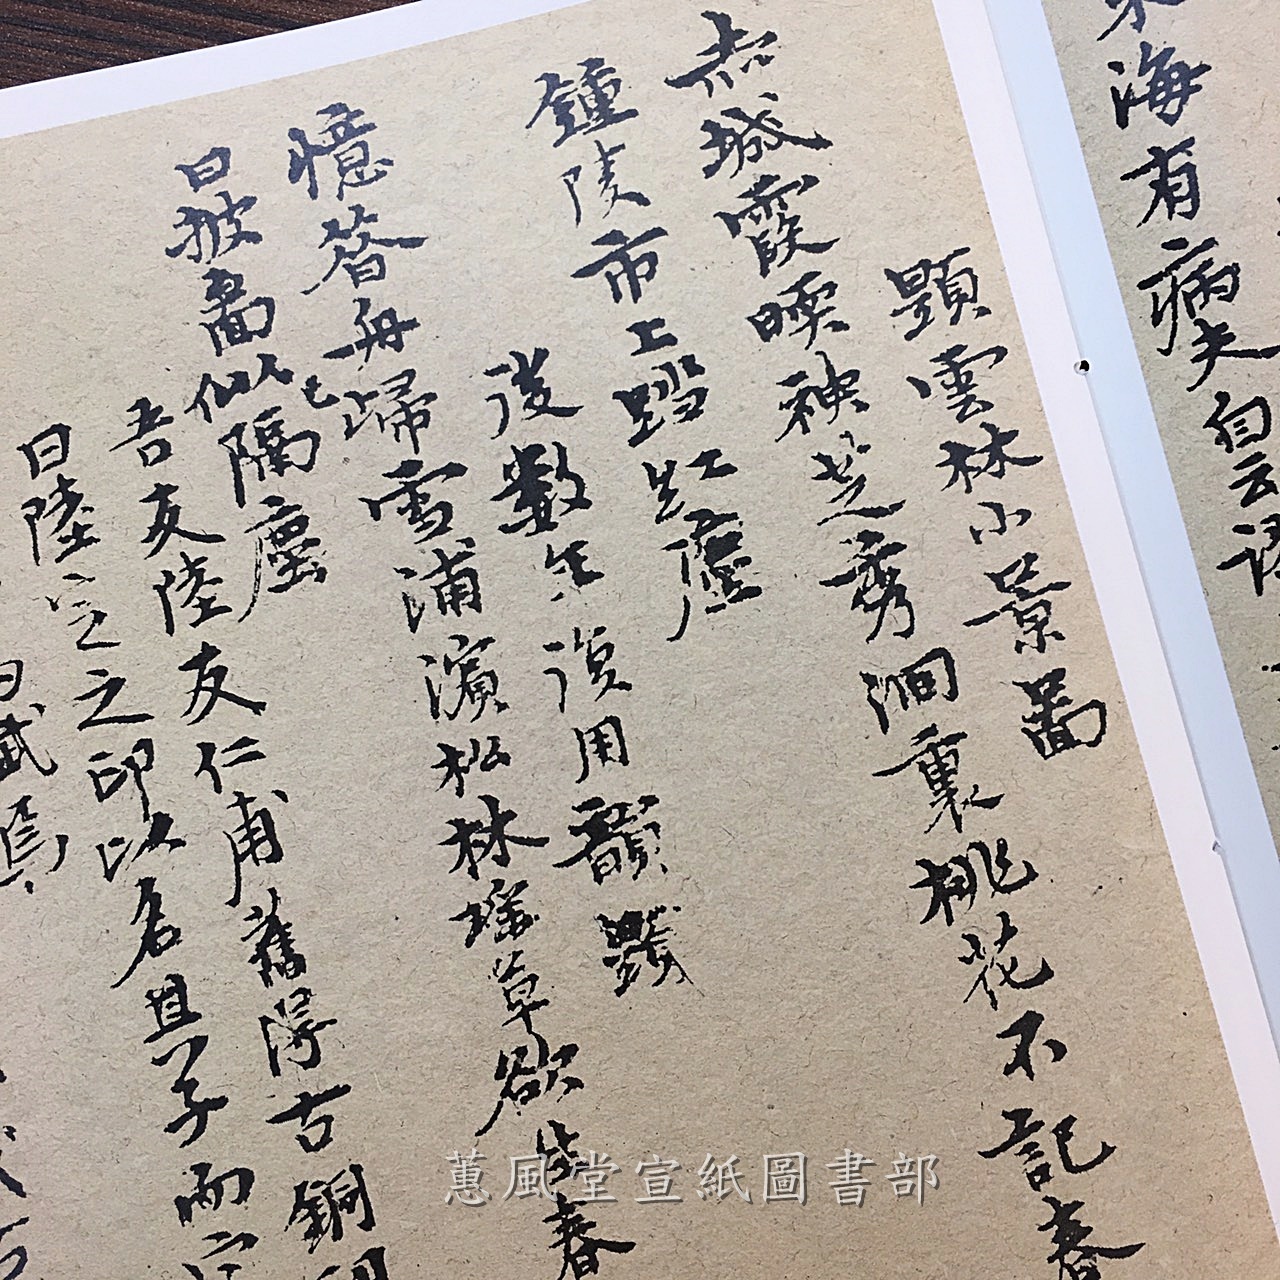 海有病夫自云
題雲林小景圖
赤城霞暖神芝秀澗裏桃花不記春
鍾陵市上踏紅塵
後數年復用韻題
憶昔舟歸雪浦濱松林瑶草欲皆春
日披圖似已隔塵
吾友陸友仁甫舊得古銅印
曰陸定之之印以名其子而字
蕙風堂宣紙圖書部